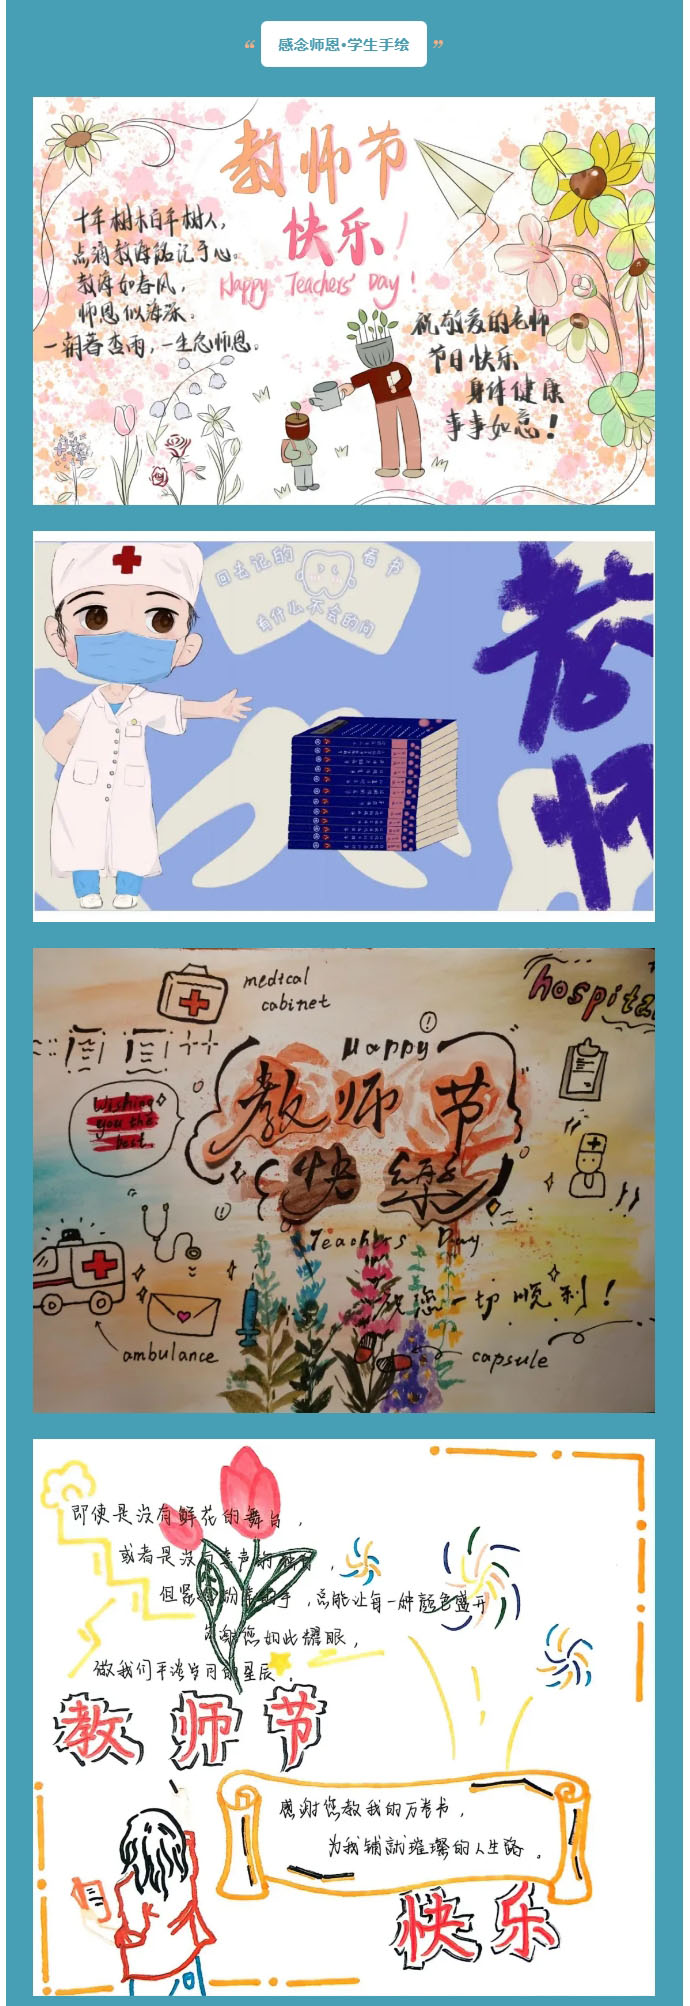 感念师恩•学生手绘
教师节
快乐!
Happy Teachers' Day!
十年树木百年树人,
点滴教诲铭记于心。
教诲如春风,
师恩似海深。
一朝沐杏雨,一生念师恩。
祝敬爱的老师
节日快乐
身体健康
事事如意!
回去记的
看书
有什么不会的问
medical
cabinet
hospital
Happy
教师节
快樂
Wishing
you the
best.
Teachers Day
祝您一切顺利!
ambulance
capsule
即使是没有鲜花的舞台,
或者是没有
但
,总能让每一种颜色盛开
您如此耀眼,
做我们平淡岁月的星辰。
教师节
感谢您教我的万卷书,
为我铺就璀璨的人生路。
快乐